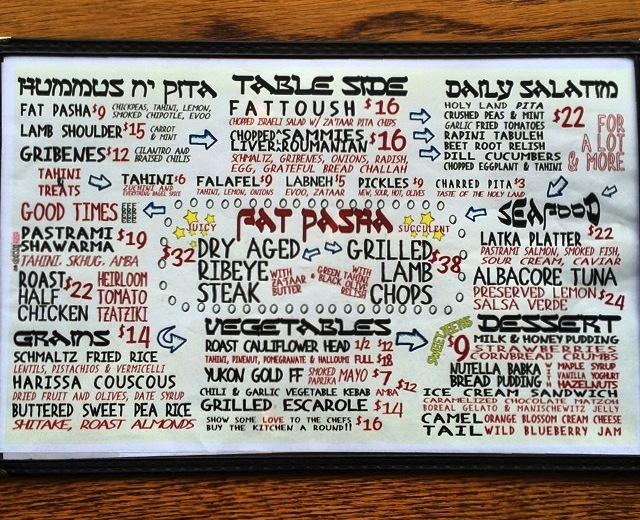 HUMMUS N' PITA
FAT PASHA $9 CHICKPEAS, TAHINI, LEMON,
SMOKED CHIPOTLE, EVOO
LAMB SHOULDER $15 CARROT
& MINT
GRIBENES $12 CILANTRO AND
BRAISED CHILIS
TAHINI
TREATS
TAHINI $6
ZUCHINI AND
EVERYTHING BAGEL SPICE
FALAFEL $9
TAHINI, LEMON, ONIONS
LABNEH $5
EVOO, ZAATAR
PICKLES $9
NEW, SOUR, HOT, OLIVES
CHARRED PITA $3
TASTE OF THE HOLY LAND
TABLE SIDE
FATTOUSH $16
CHOPPED ISRAELI SALAD W/ ZATAAR PITA CHIPS
CHOPPED SAMMIES
LIVER ROUMANIAN $16
SCHMALTZ, GRIBENES, ONIONS, RADISH,
EGG, GRATEFUL BREAD CHALLAH
DAILY SALATIM
HOLY LAND PITA
CRUSHED PEAS & MINT
GARLIC FRIED TOMATOES
RAPINI TABULEH
BEET ROOT RELISH
DILL CUCUMBERS
CHOPPED EGGPLANT & TAHINI
$22
FOR
A LOT
& MORE
GOOD TIMES
PASTRAMI
SHAWARMA $19
TAHINI, SKHUG, AMBA
ROAST
HALF
CHICKEN
$22
HEIRLOOM
TOMATO
TZATZIKI
FAT PASHA
JUICY
SUCCULENT
$32
DRY AGED
RIBEYE
STEAK
WITH
ZATAAR
BUTTER
&
GRILLED
LAMB
CHOPS
$38
WITH
GREEN TAHINI
BLACK OLIVE
RELISH
SEAFOOD
LATKA PLATTER $22
PASTRAMI SALMON, SMOKED FISH,
SOUR CREAM, CAVIAR
ALBACORE TUNA
PRESERVED LEMON
SALSA VERDE $24
GRAINS $14
SCHMALTZ FRIED RICE
LENTILS, PISTACHIOS & VERMICELLI
HARISSA COUSCOUS
DRIED FRUIT AND OLIVES, DATE SYRUP
BUTTERED SWEET PEA RICE
SHIITAKE, ROAST ALMONDS
VEGETABLES
ROAST CAULIFLOWER HEAD 1/2 $12
TAHINI, PINENUT, POMEGRANATE & HALLOUMI FULL $18
YUKON GOLD FF SMOKED
PAPRIKA MAYO $7
CHILI & GARLIC VEGETABLE KEBAB AMBA $12
GRILLED ESCAROLE $14
SHOW SOME LOVE TO THE CHEFS
BUY THE KITCHEN A ROUND!! $16
DESSERT
$9
MILK & HONEY PUDDING
STRAWBERRIES
CORNBREAD CRUMBS
NUTELLA BABKA
BREAD PUDDING
WITH
MAPLE SYRUP
VANILLA YOGHURT
HAZELNUTS
ICE CREAM SANDWICH
CARAMELIZED CHOCOLATE MATZOH
BOREAL GELATO & MANISCHEWITZ JELLY
CAMEL
TAIL
ORANGE BLOSSOM CREAM CHEESE
WILD BLUEBERRY JAM